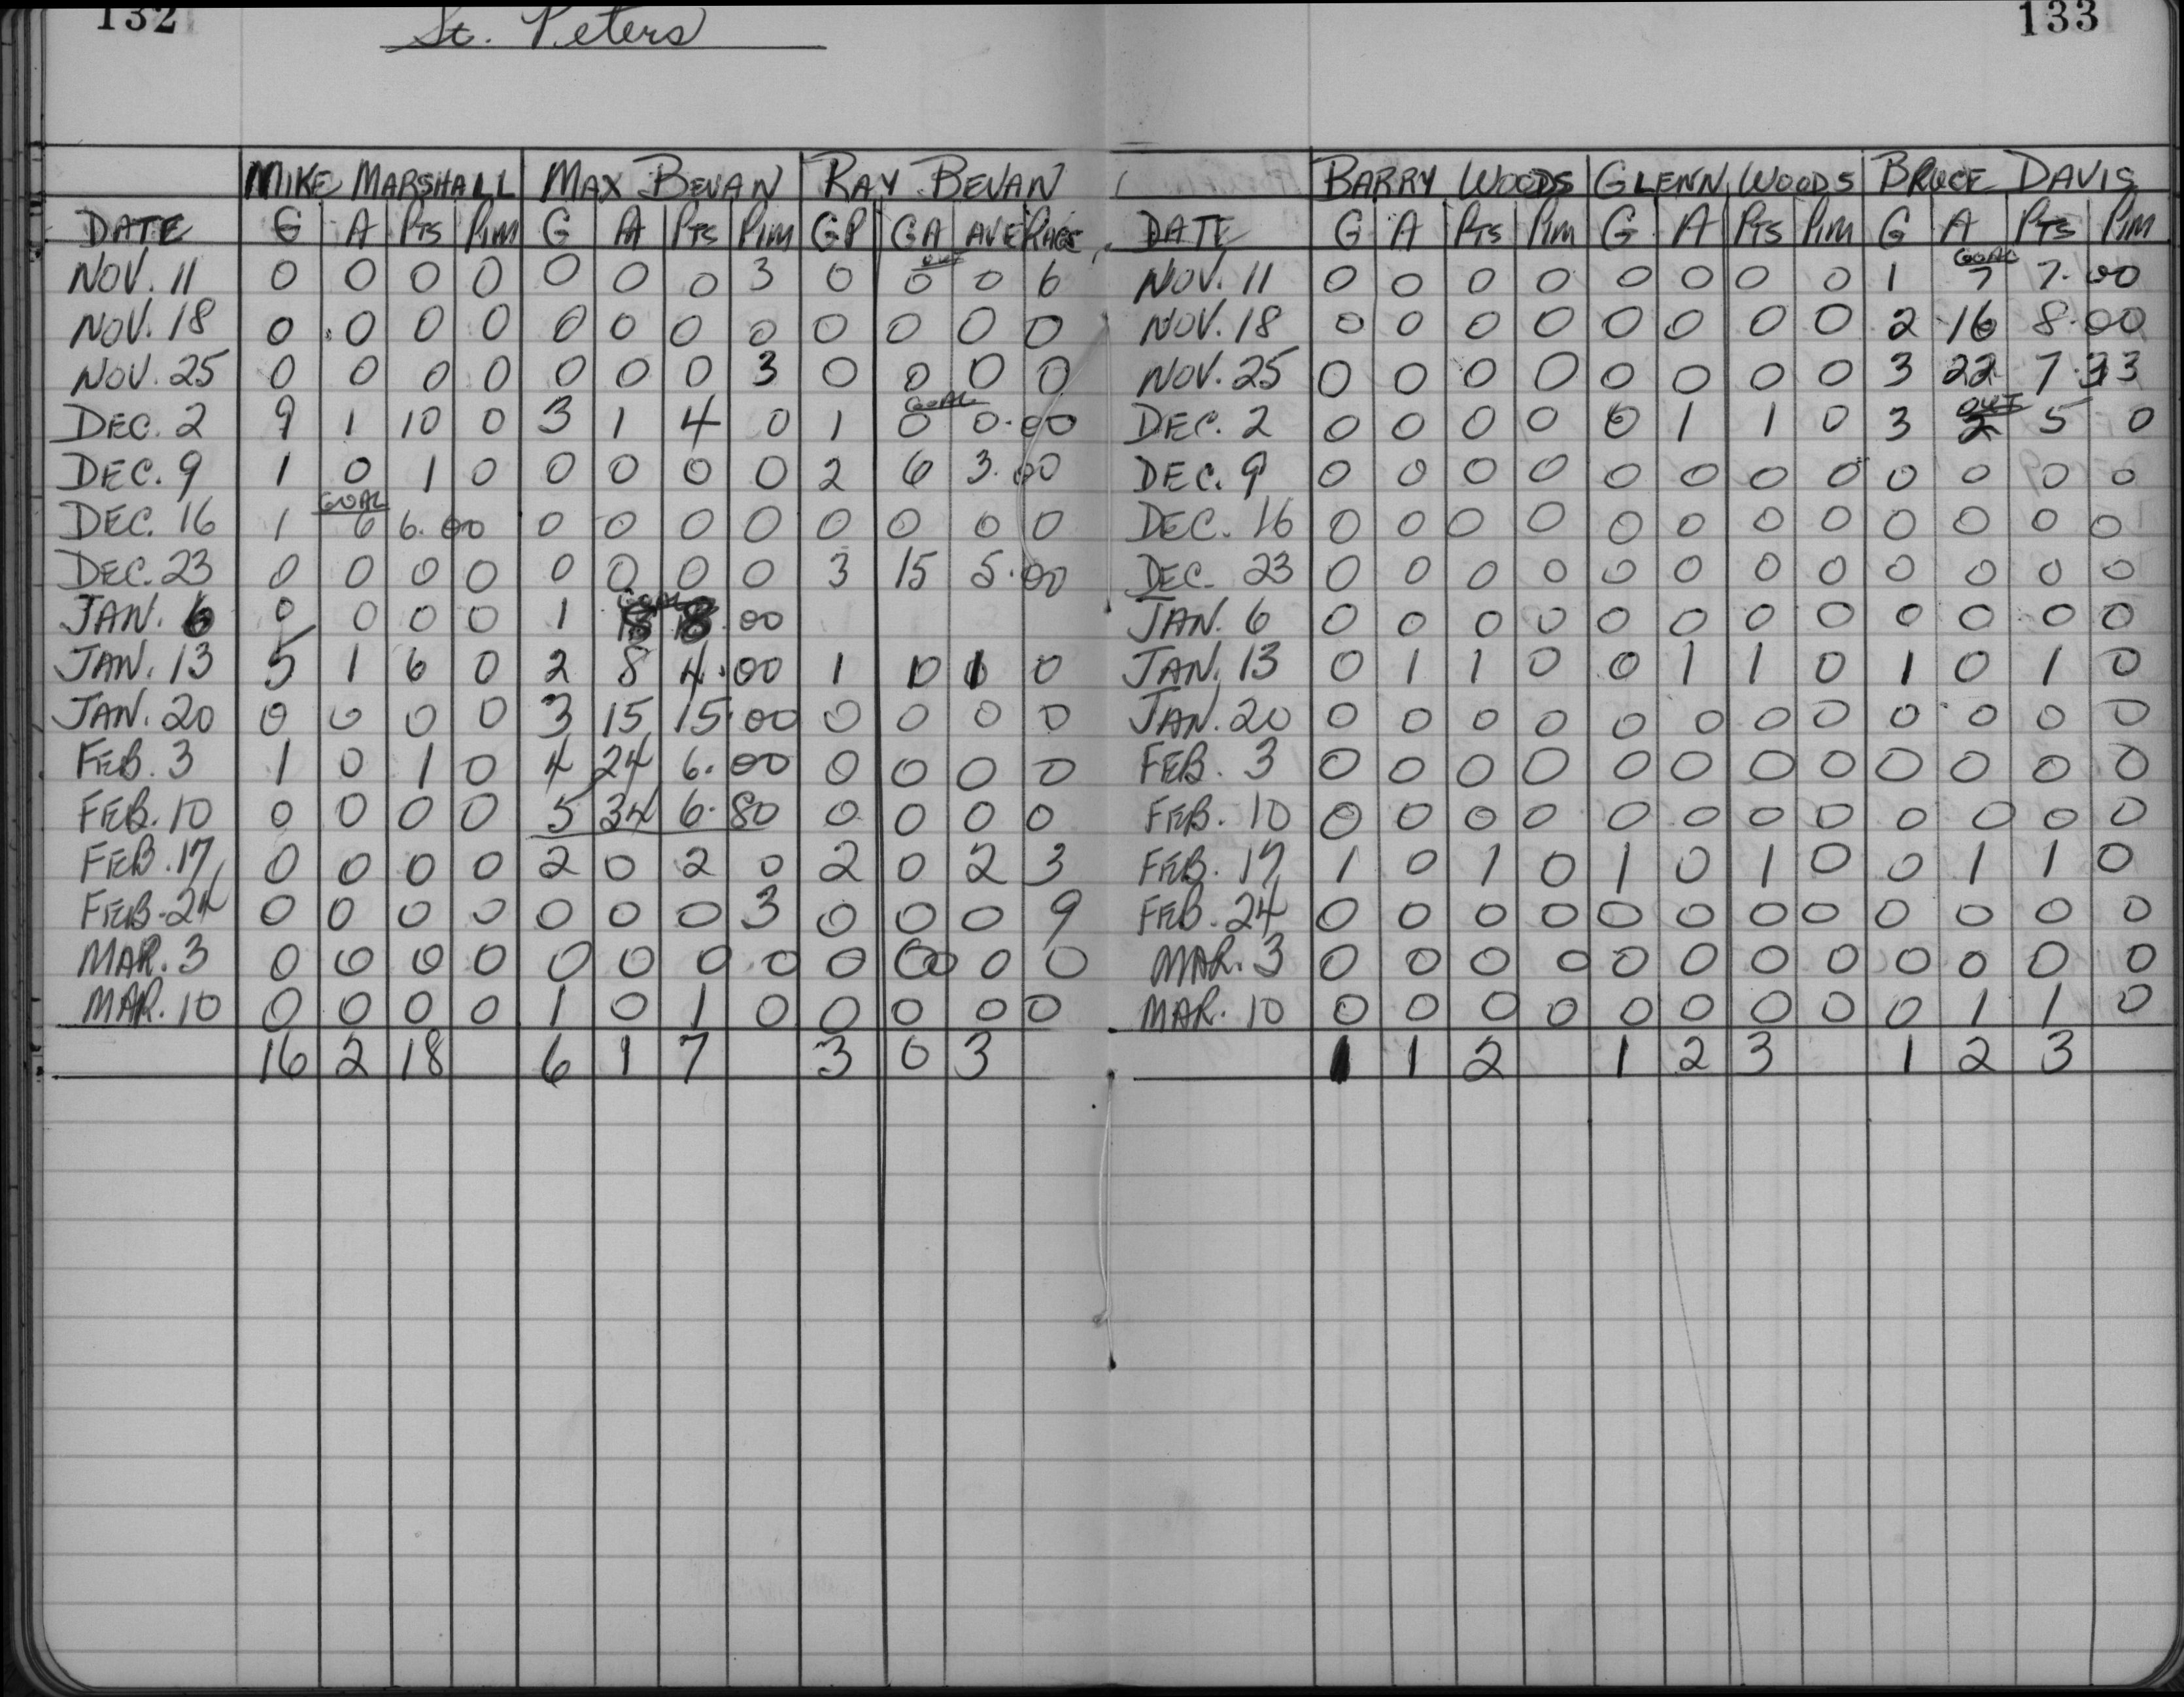 132
St. Peters
MIKE MARSHALL MAX BEVAN RAY BEVAN
DATE G A PTS PIM G A PTS PIM GP GA AVERAGE
OUT
NOV. 11 0 0 0 0 0 0 0 3 0 0 0 6
NOV. 18 0 0 0 0 0 0 0 0 0 0 0 0
NOV. 25 0 0 0 0 0 0 0 3 0 0 0 0
GOAL
DEC. 2 9 1 10 0 3 1 4 0 1 0 0.00
DEC. 9 1 0 1 0 0 0 0 0 2 6 3.00
GOAL
DEC. 16 1 6 6.00 0 0 0 0 0 0 0 0
DEC. 23 0 0 0 0 0 0 0 0 3 15 5.00
GOAL
JAN. 6 0 0 0 0 1 .00
JAN. 13 5 1 6 0 2 8 4.00 1 0 1 0
JAN. 20 0 0 0 0 3 15 15.00 0 0 0 0
FEB. 3 1 0 1 0 4 24 6.00 0 0 0 0
FEB. 10 0 0 0 0 5 34 6.80 0 0 0 0
FEB. 17 0 0 0 0 2 0 2 0 2 0 2 3
FEB. 24 0 0 0 0 0 0 0 3 0 0 0 9
MAR. 3 0 0 0 0 0 0 0 0 0 0 0 0
MAR. 10 0 0 0 0 1 0 1 0 0 0 0 0
16 2 18 6 1 7 3 0 3
133
BARRY WOODS GLENN WOODS BRUCE DAVIS
DATE G A PTS PIM G A PTS PIM G A PTS PIM
GOAL
NOV. 11 0 0 0 0 0 0 0 0 1 7 7.00
NOV. 18 0 0 0 0 0 0 0 0 2 16 8.00
NOV. 25 0 0 0 0 0 0 0 0 3 22 7.33
OUT
DEC. 2 0 0 0 0 0 1 1 0 3 2 5 0
DEC. 9 0 0 0 0 0 0 0 0 0 0 0 0
DEC. 16 0 0 0 0 0 0 0 0 0 0 0 0
DEC. 23 0 0 0 0 0 0 0 0 0 0 0 0
JAN. 6 0 0 0 0 0 0 0 0 0 0 0 0
JAN. 13 0 1 1 0 0 1 1 0 1 0 1 0
JAN. 20 0 0 0 0 0 0 0 0 0 0 0 0
FEB. 3 0 0 0 0 0 0 0 0 0 0 0 0
FEB. 10 0 0 0 0 0 0 0 0 0 0 0 0
FEB. 17 1 0 1 0 1 0 1 0 0 1 1 0
FEB. 24 0 0 0 0 0 0 0 0 0 0 0 0
MAR. 3 0 0 0 0 0 0 0 0 0 0 0 0
MAR. 10 0 0 0 0 0 0 0 0 0 1 1 0
1 1 2 1 2 3 1 2 3